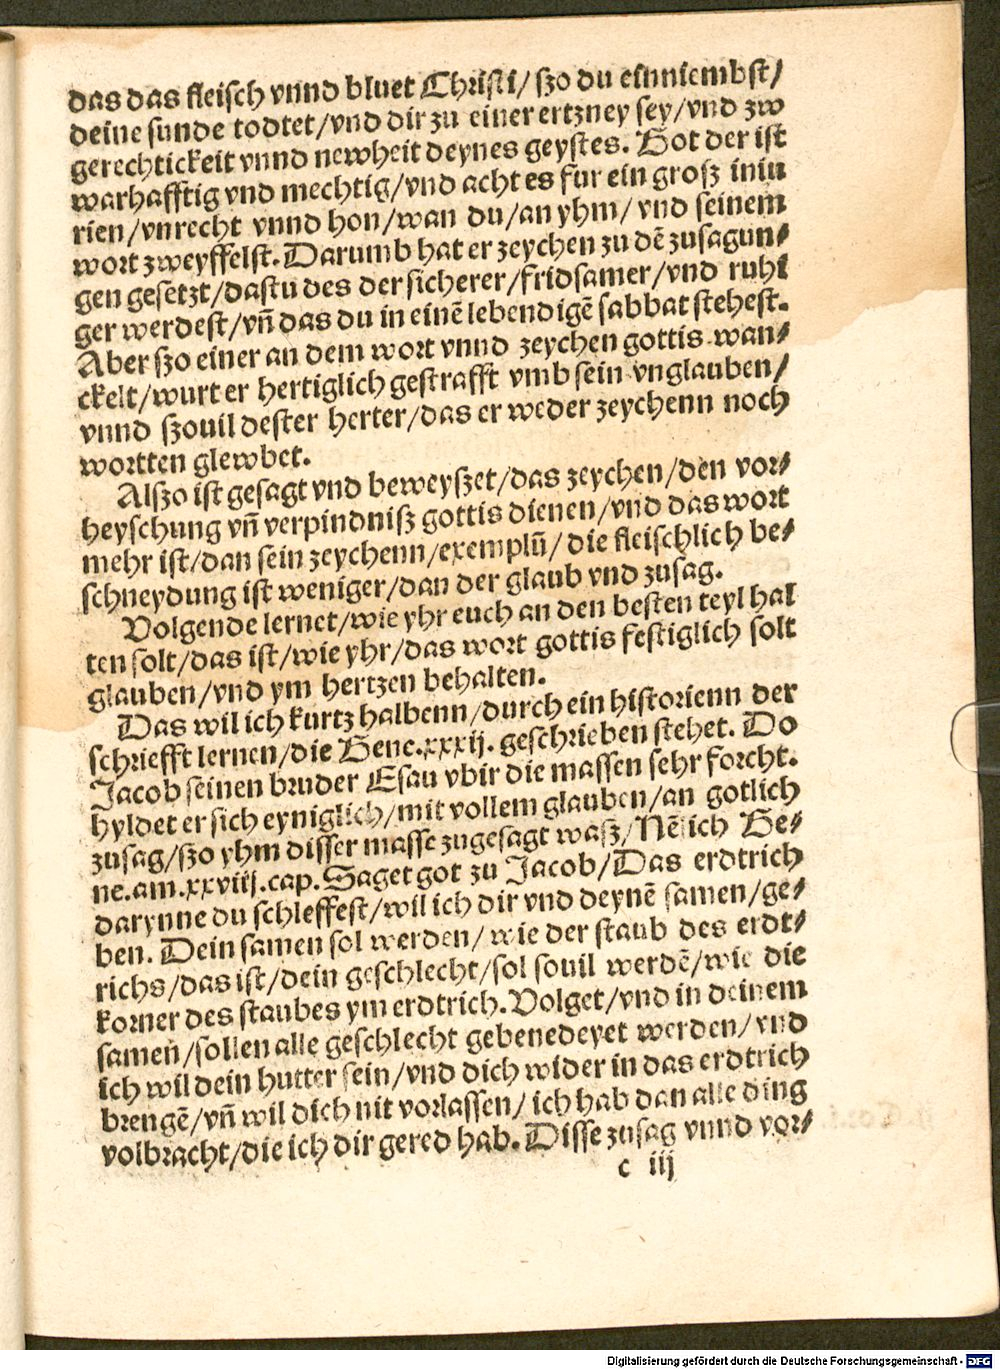 das das fleisch vnnd bluet Christi/ szo du einniembst/
deine sunde todtet/vnd dir zu einer ertzney sey/vnd zw
gerechtickeit vnnd newheit deynes geystes. Got der ist
warhafftig vnd mechtig/vnd acht es fur ein grosz iniu
rien/vnrecht vnnd hon/wan du/an yhm/ vnd seinem
wort zweyffelst. Darumb hat er zeychen zu dē zusagun⸗
gen gesetzt/dastu des der sicherer/fridsamer/vnd ruhi
ger werdest/vn̄ das du in einē lebendigē sabbat stehest.
Aber szo einer an dem wort vnnd zeychen gottis wan⸗
ckelt/wurt er hertiglich gestrafft vmb sein vnglauben/
vnnd szouil dester herter/das er weder zeychenn noch
wortten glewbet.
Alszo ist gesagt vnd beweyszet/das zeychen/den vor⸗
heyschung vn̄ verpindnisz gottis dienen/vnd das wort
mehr ist/dan sein zeychenn/exemplū/ die fleischlich be⸗
schneydung ist weniger/dan der glaub vnd zusag.
Volgende lernet/wie yhr euch an den besten teyl hal
ten solt/das ist/wie yhr/das wort gottis festiglich solt
glauben/vnd ym hertzen behalten.
Das wil ich kurtz halbenn/durch ein historienn der
schriefft lernen/die Gene.xxxij. geschrieben stehet. Do
Jacob seinen bruder Esau vbir die massen sehr forcht.
hyldet er sich eyniglich/mit vollem glauben/an gotlich
zusag/szo yhm disser masse zugesagt wasz/Nēlich Ge⸗
ne.am.xxviij.cap. Saget got zu Jacob/Das erdtrich
darynne du schleffest/wil ich dir vnd deynē samen/ge⸗
ben. Dein samen sol werden/ wie der staub des erdt⸗
richs/das ist/dein geschlecht/sol souil werdē/wie die
korner des staubes ym erdtrich. Volget/vnd in deinem
samen/sollen alle geschlecht gebenedeyet werden/ vnd
ich wil dein hutter sein/vnd dich wider in das erdtrich
brengē/vn̄ wil dich nit vorlassen/ ich hab dan alle ding
volbracht/die ich dir gered hab. Disse zusag vnnd vor⸗
c iij
Digitalisierung gefördert durch die Deutsche Forschungsgemeinschaft - DFG